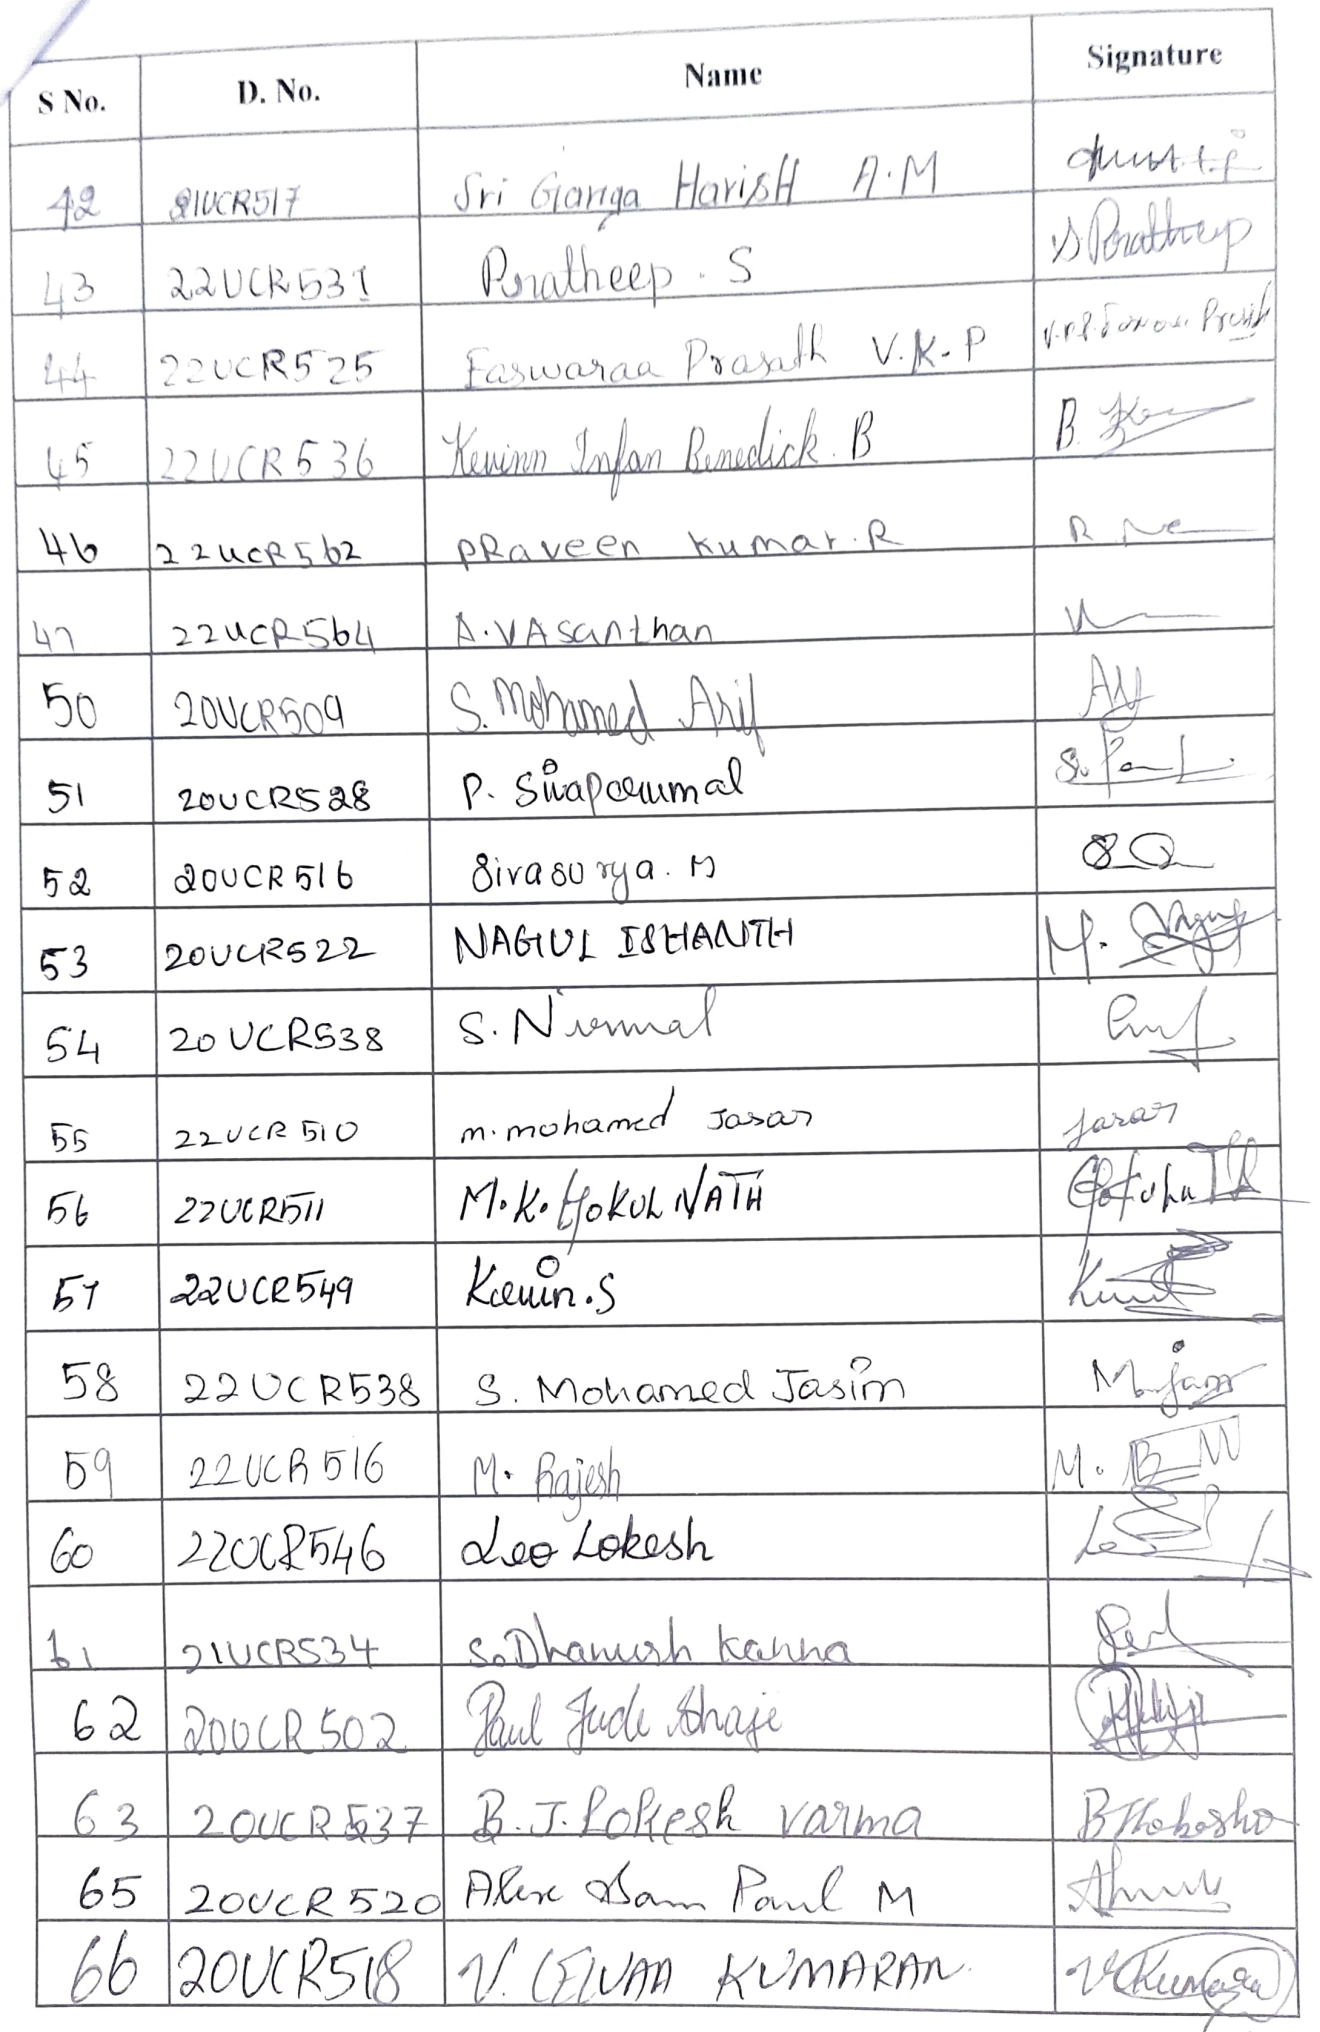 S No. D. No. Name Signature
42 21UCR517 Sri Ganga Harish A.M
43 22UCR531 Pratheep. S S Pratheep
44 22UCR525 Easwaraa Prasath V.K.P
45 22UCR536 Kevinn Infan Benedick. B B. Kev
46 22UCR562 PRaveen Kumar.R R
47 22UCR564 A.VAsanthan
50 20UCR509 S. Mohamed Arif
51 20UCR528 P. Sivaperumal
52 20UCR516 Sivasurya. M
53 20UCR522 NAGUL ISHANTH M.
54 20UCR538 S. Nirmal
55 22UCR510 m. mohamed Jasar Jasar
56 22UCR511 M.K. GOKUL NATH
57 22UCR549 Kevin.S
58 22UCR538 S. Mohamed Jasim
59 22UCR516 M. Rajesh M.
60 22UCR546 Leo Lokesh
61 21UCR534 S. Dhanush Kanna
62 20UCR502 Paul Jude Shaje
63 20UCR537 B.J. Lokesh Varma
65 20UCR520 Alex Sam Paul M
66 20UCR518 V. CELVAA KUMARAN V Kumaran